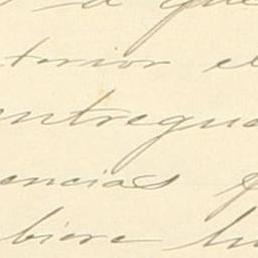 a que
terior el
entregua
encias y
biere hu